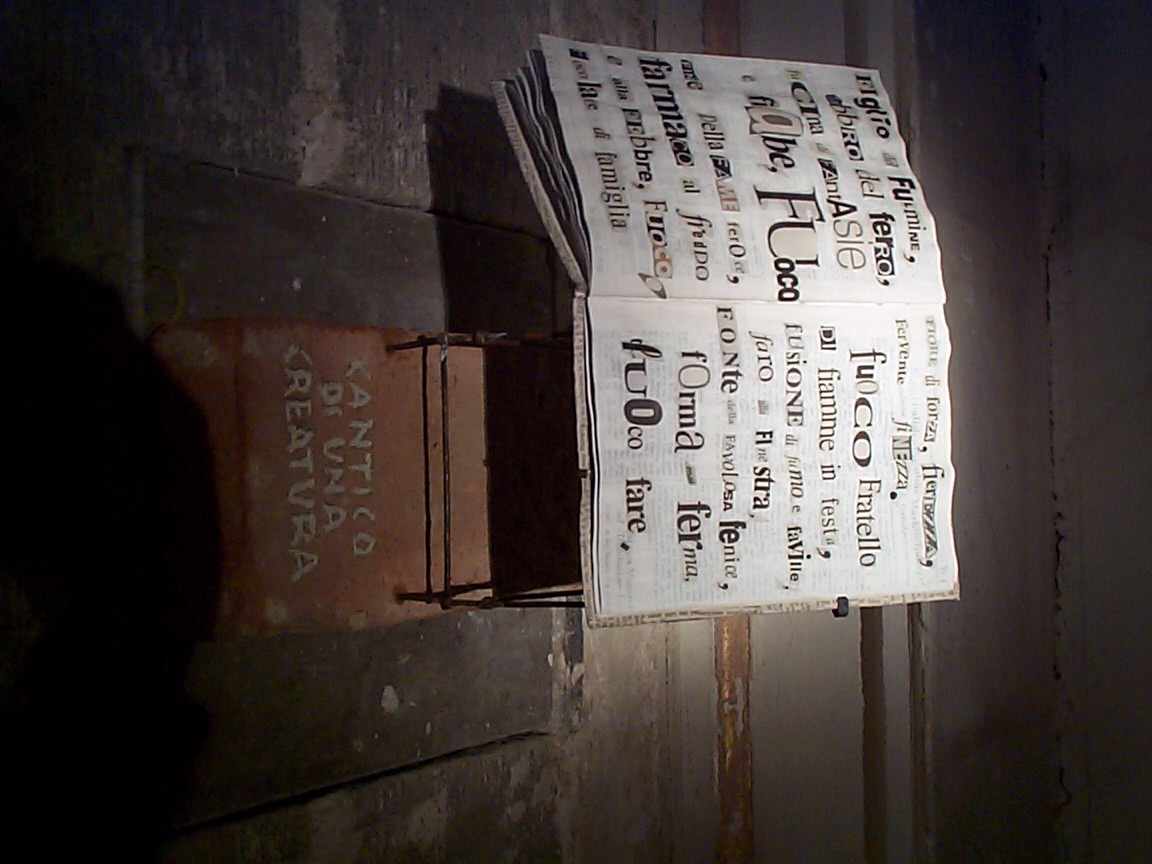 Figlio del FuLmiNE,
ebbRO del ferRO,
fuCIna di FAntASie
e fiabe, FUoco
della FAME ferOce,
farmaco al freDDO
e alla FEbbre, FuOCO,
focolare di famiglia
FIORE di forza, fierEZZA,
Fervente fiNEzza.
fuOCO Fratello
DI fiamme in festa,
fUSiONE di fumo e faVille,
faro alla FInestra,
FONte della FAVOLOSA fenice,
fOrma ferma,
fUOco fare.
CANTICO
DI UNA
CREATURA